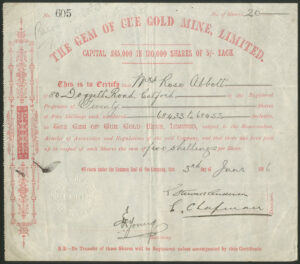 No. 605 No. of Shares 20
THE GEM OF CUE GOLD MINE, LIMITED.
CAPITAL £65,000 IN SHARES OF 5/- EACH
This is to Certify Mrs Rose Abbott
80 Doggett Road Catford
Proprietor of Twenty Shares
of Five Shillings each numbered 68433 to 68452
GEM OF CUE GOLD MINE, LIMITED, subject to the Memorandum
of Association and Regulations of the said Company, and that there has been paid
up in respect of each Share the sum of five shillings per Share.
Given under the Common Seal of the Company, this 3rd day of June
E. Chapman
Secretary
N.B.—No Transfer of these Shares will be Registered unless accompanied by this Certificate